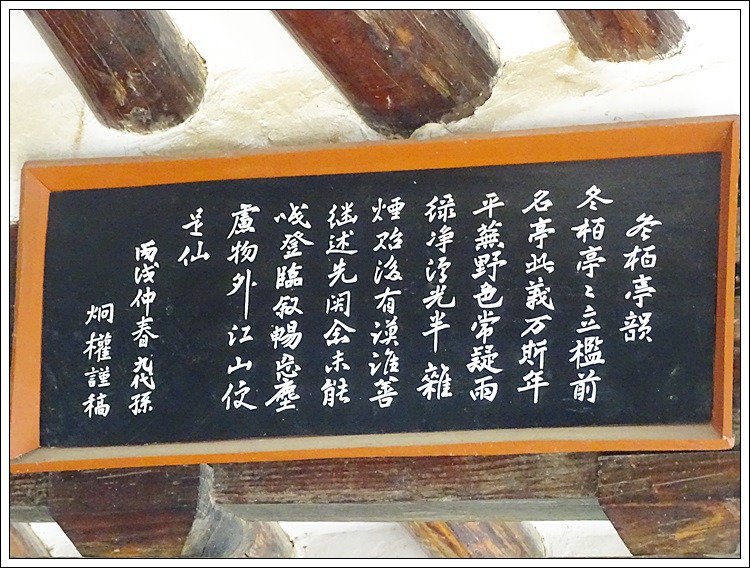 冬栢亭韻
冬栢亭〻立檻前
名亭此義万斯年
平蕪野色常疑雨
綠净汀光半雜
煙貽後有謨誰善
継述先闕念未能
登臨叙暢忘塵
慮物外江山便
是仙
丙戌仲春九代孫
炯權謹稿